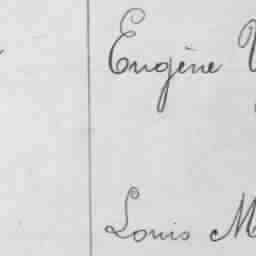 Eugène
Louis M